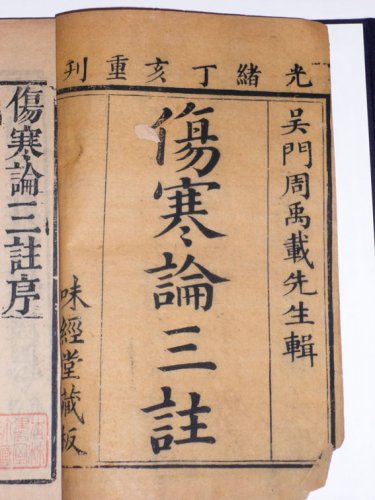 光緒丁亥重刊
吴門周禹載先生輯
傷寒論三註
味經堂藏板
傷寒論三註序